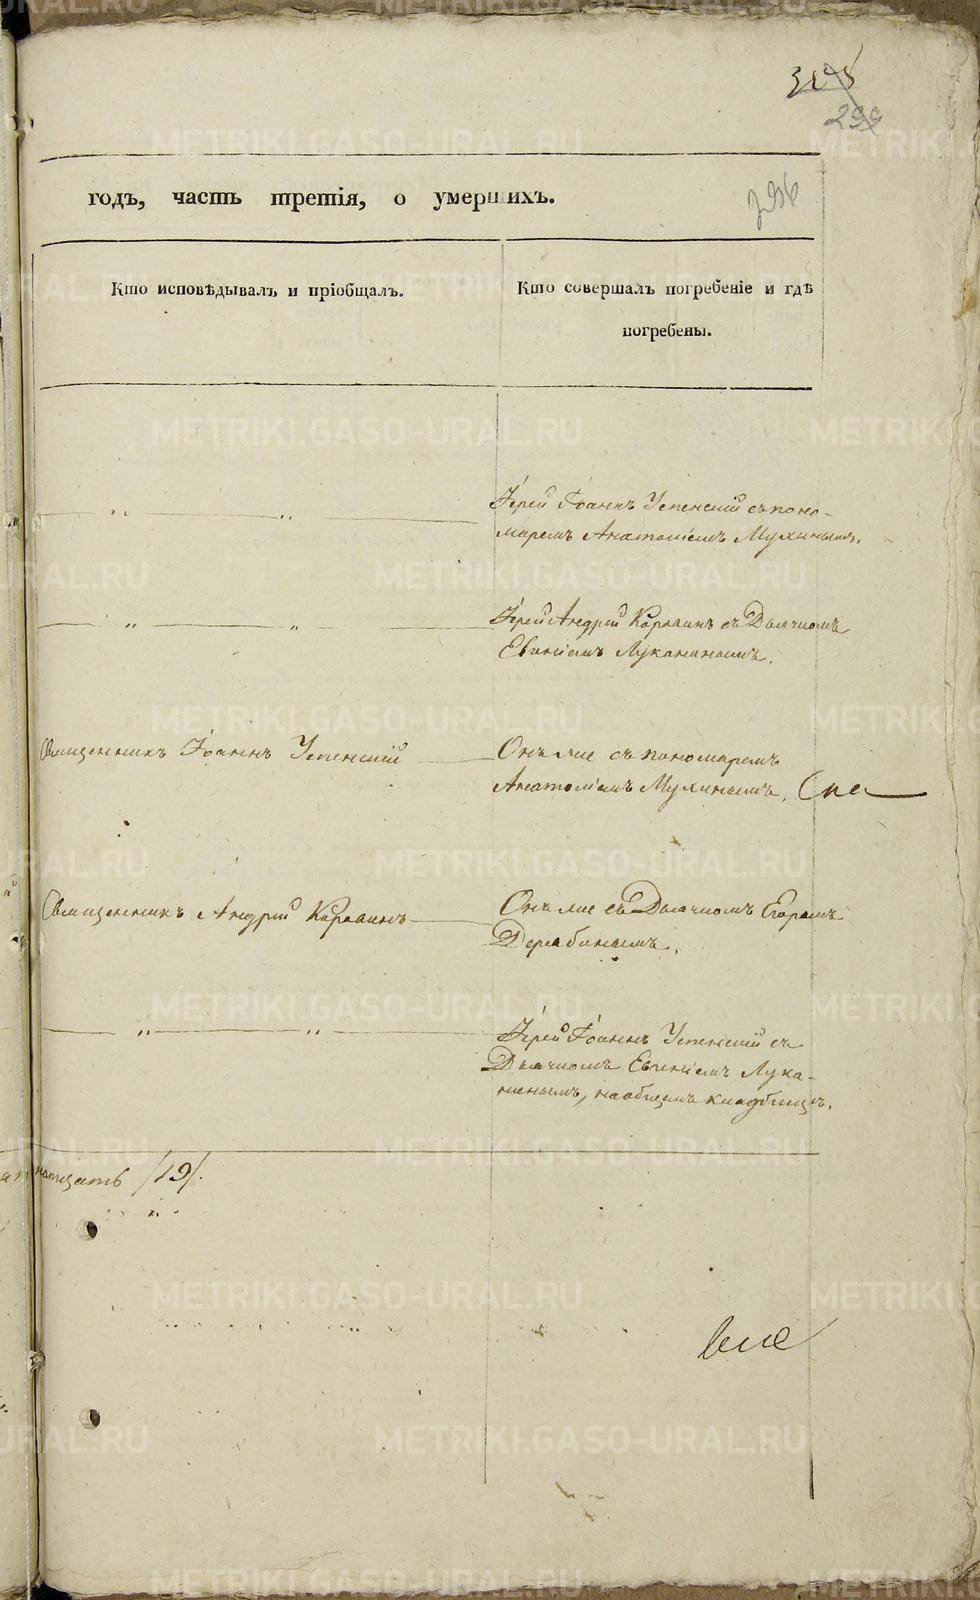 299
годъ, часть третія, о умершихъ.
296
Кто исповѣдывалъ и пріобщалъ.
Кто совершалъ погребеніе и гдѣ
погребены.
Іерей Іоаннъ Успенскій съ поно-
маремъ Анатоліемъ Мухинымъ.
Іерей Андрей Карпинъ съ Дьячкомъ
Евгеніемъ Луканинымъ.
Священникъ Іоаннъ Успенскій
Онъ же съ пономаремъ
Анатоліемъ Мухинымъ.
Священникъ Андрей Карпинъ
Онъ же съ Дьячкомъ Егоромъ
Дерябинымъ.
Іерей Іоаннъ Успенскій съ
Дьячкомъ Евгеніемъ Лука-
нинымъ, на общемъ кладбищѣ.
натцать /19/.
METRIKI.GASO-URAL.RU